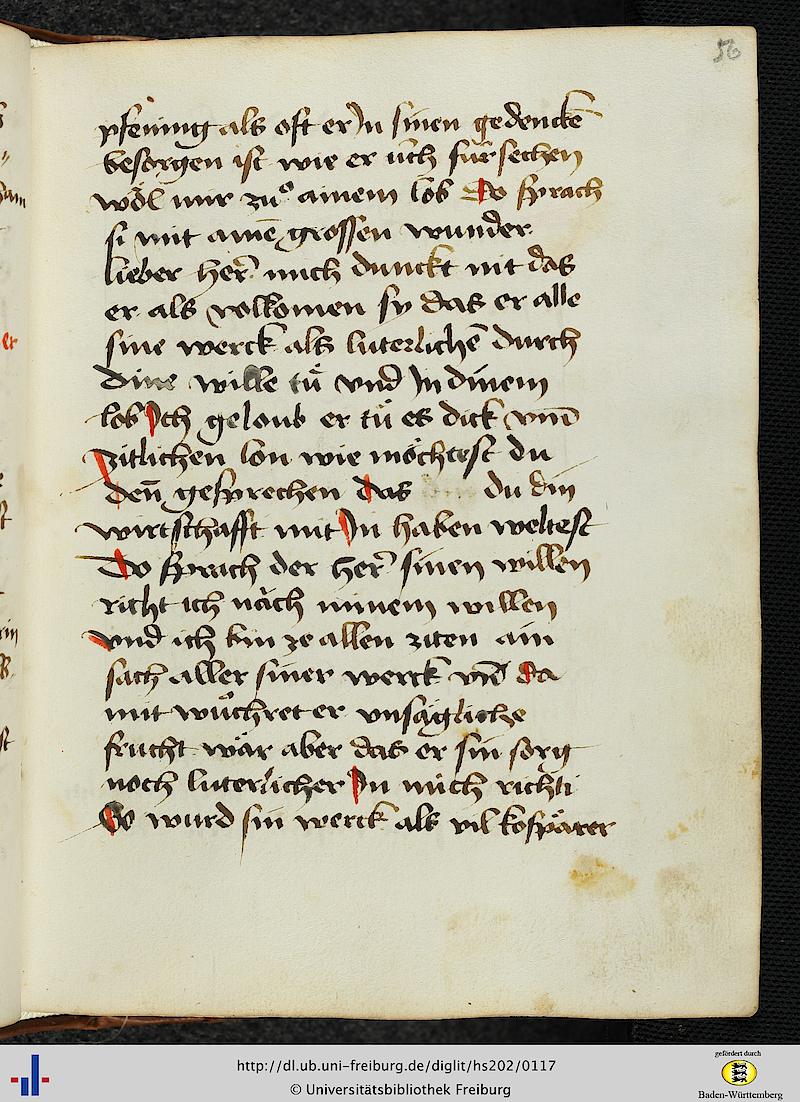 56
pfening als oft er Jn sinen gedenckē
besorgen ist wie er úch fúrsechen
wŏl mir zuͦ ainem lob Do sprach
si mit ainē grossen wunder
lieber her mich dunckt nit das
er als volkomen sy das er alle
sine werck als luterlichē durch
dine wille tuͤ vnd Jn dinem
lob Jch geloub er tuͤ es dick vm̄
zitlichen lon wie moͤchtest du
den̄ gesprechen das du din
wirtschafft mit Jn haben weltest
Do sprach der her sinen willen
richt ich nāch minem willen
vnd ich bin ze allen ziten ain
sach aller siner werck vn̄ da
mit wuͦchret er vnsägliche
frucht wär aber das er sin sorg
noch luterlicher Jn mich richti
So wurd sin werck als vil kospärer
http://dl.ub.uni-freiburg.de/diglit/hs202/0117
© Universitätsbibliothek Freiburg
gefördert durch
Baden-Württemberg